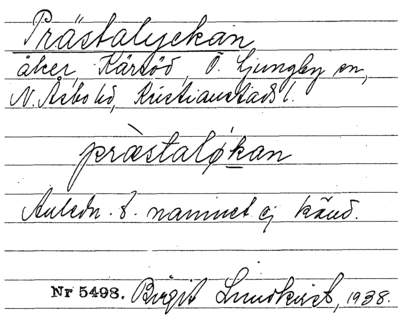 Prästalyckan
åker, Kärsöd, Ö. Ljungby sn,
N. Åsbo hd, Kristianstads l.
præstaløkan
Anledn. t. namnet ej känd.
Nr 5498. Birgit Lundkvist, 1938.